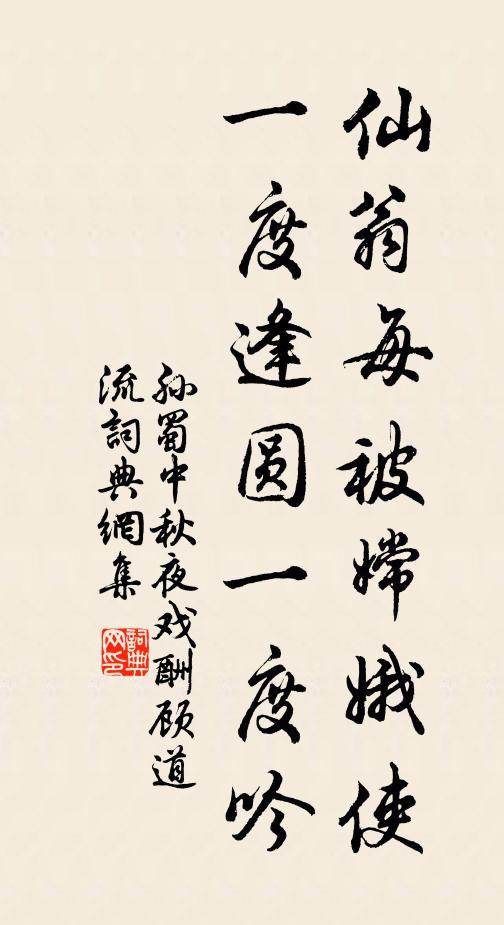 仙翁每被嫦娥使
一度逢圆一度吟
孙蜀中秋夜戏酬顾道
流詞典網集
詞典网印